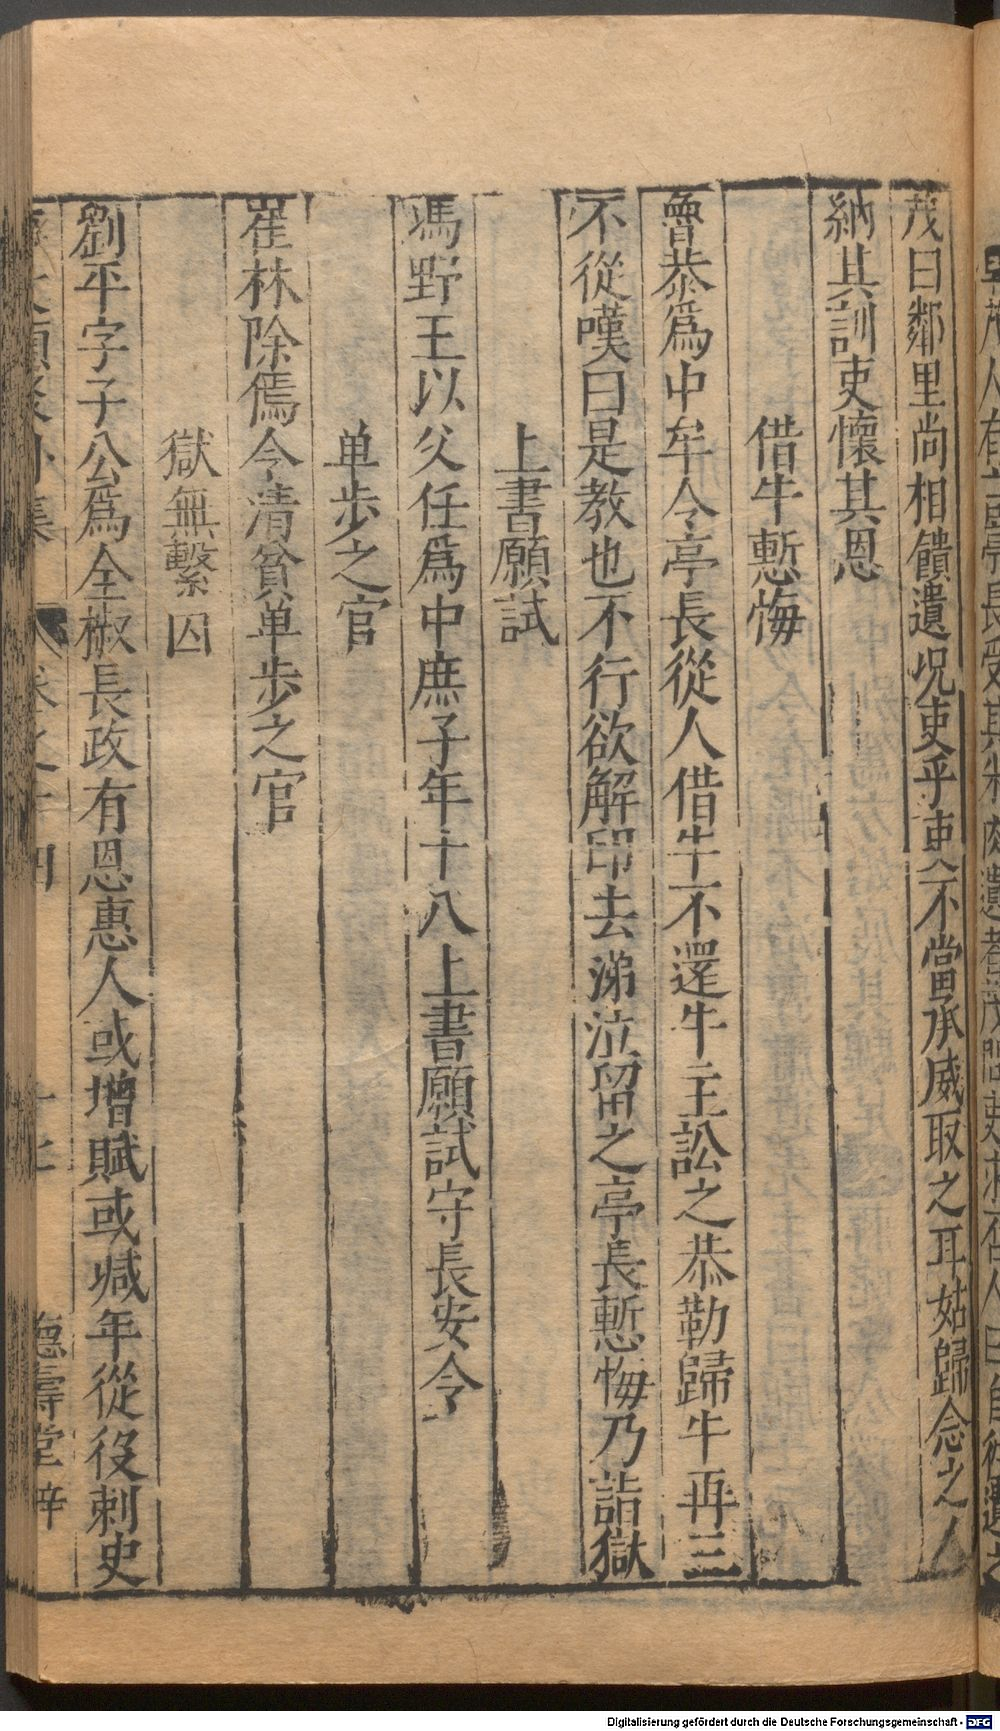 茂曰鄰里尚相饋遺况吏乎吏人不當承威取之耳姑歸念之人
納其訓吏懷其恩
借牛慙悔
魯恭爲中牟令亭長從人借牛不還牛主訟之恭勅歸牛再三
不從嘆曰是教也不行欲解印去涕泣留之亭長慙悔乃詣獄
上書願試
馮野王以父任爲中庶子年十八上書願試守長安令
单步之官
崔林除傿令清貧单步之官
獄無繫囚
劉平字子公爲全椒長政有恩惠人或增賦或减年從役刺史
卷之十四
德壽堂梓
Digitalisierung gefördert durch die Deutsche Forschungsgemeinschaft - DFG